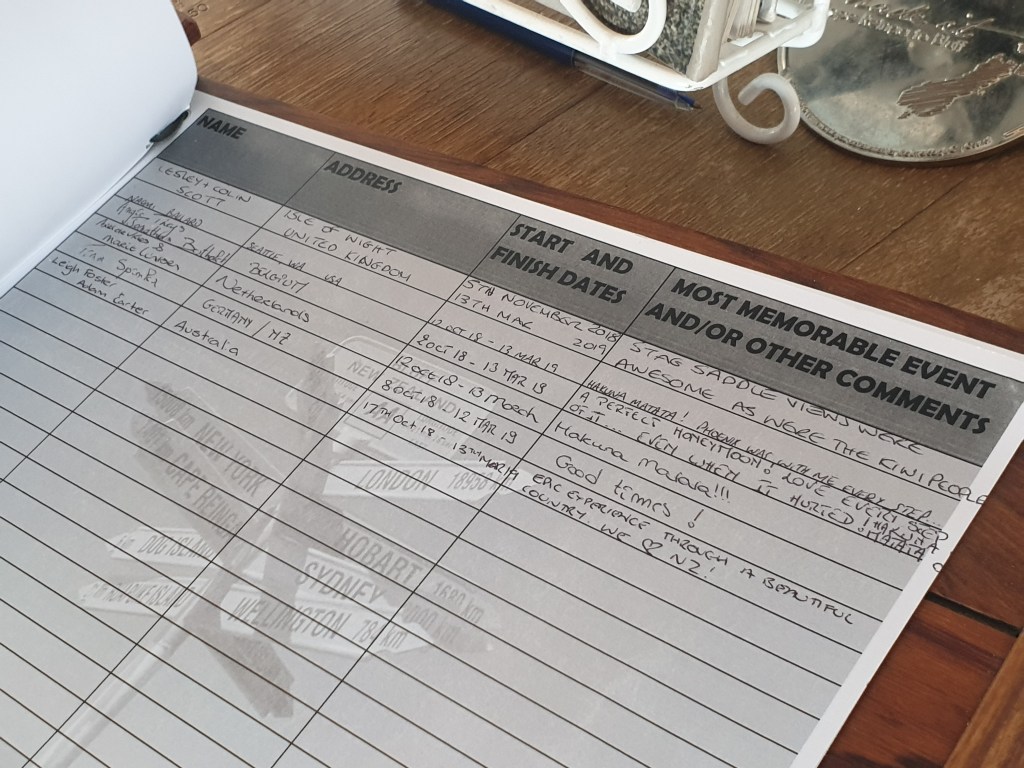 NAME
ADDRESS
START AND
FINISH DATES
MOST MEMORABLE EVENT
AND/OR OTHER COMMENTS
LESLEY + COLIN
SCOTT
ISLE OF WIGHT
UNITED KINGDOM
5TH NOVEMBER 2018
13TH MAC 2019
STAG SADDLE VIEWS WERE
AWESOME AS WERE THE KIWI PEOPLE
SEATTLE WA USA
12 OCT 18 - 13 MAR 19
HAKUNA MATATA! PHOENIX WAS WITH ME EVERY STEP
BELGIUM
8 OCT 18 - 13 MAR 19
A PERFECT HONEYMOON! LOVE EVERY
OF IT... EVEN WHEN IT HURTED! HAKUNA
MATATA
Netherlands
12 Oct 18 - 13 March
Hakuna Matata!!!
Tina Spinka
GERMANY / NZ
8 Oct 18 12 MAR 19
Good times!
Leigh Foster
Adam Exter
Australia
17th Oct 18 - 13th Mar 19
EPIC EXPERIENCE THROUGH A BEAUTIFUL
COUNTRY. WE ♡ NZ!
NEW ZEALAND
NEW YORK
CAPE REINGA
LONDON
DOG ISLAND
HOBART 1680 km
SYDNEY
WELLINGTON km